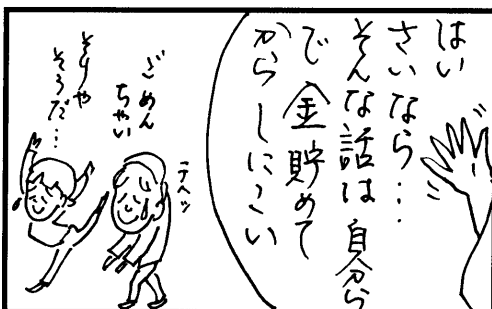 はい
さいなら…
そんな話は自分ら
で金貯めて
からしにこい
テヘッ
ごめん
ちゃい
そりゃ
そうだ…